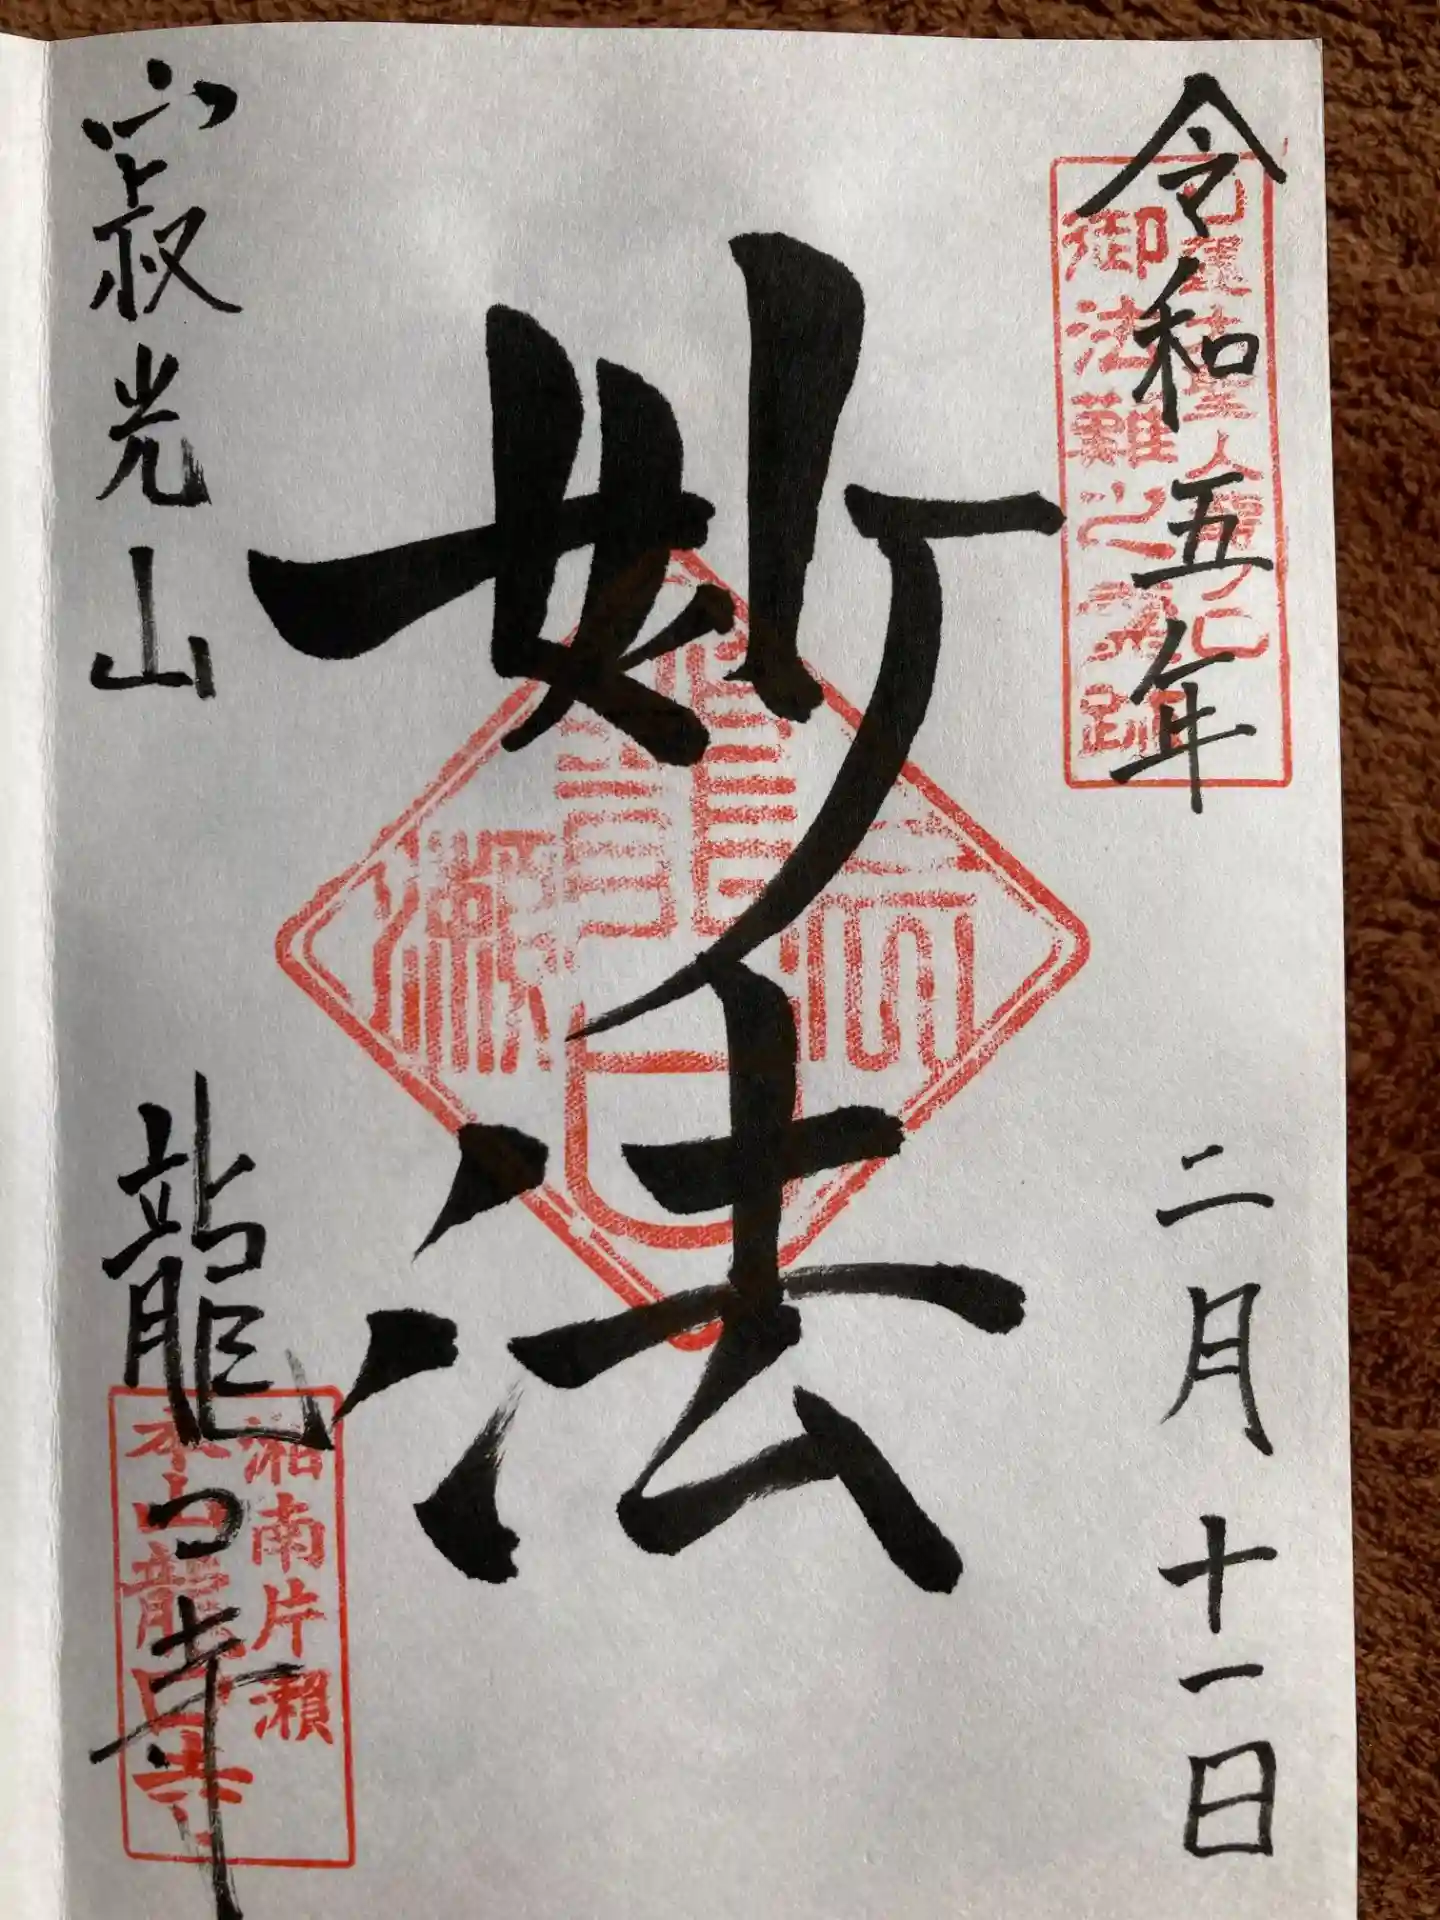 令和五年 二月十一日
御法難之霊跡
妙法
寂光山 龍口寺
湘南片瀬
本山龍口寺